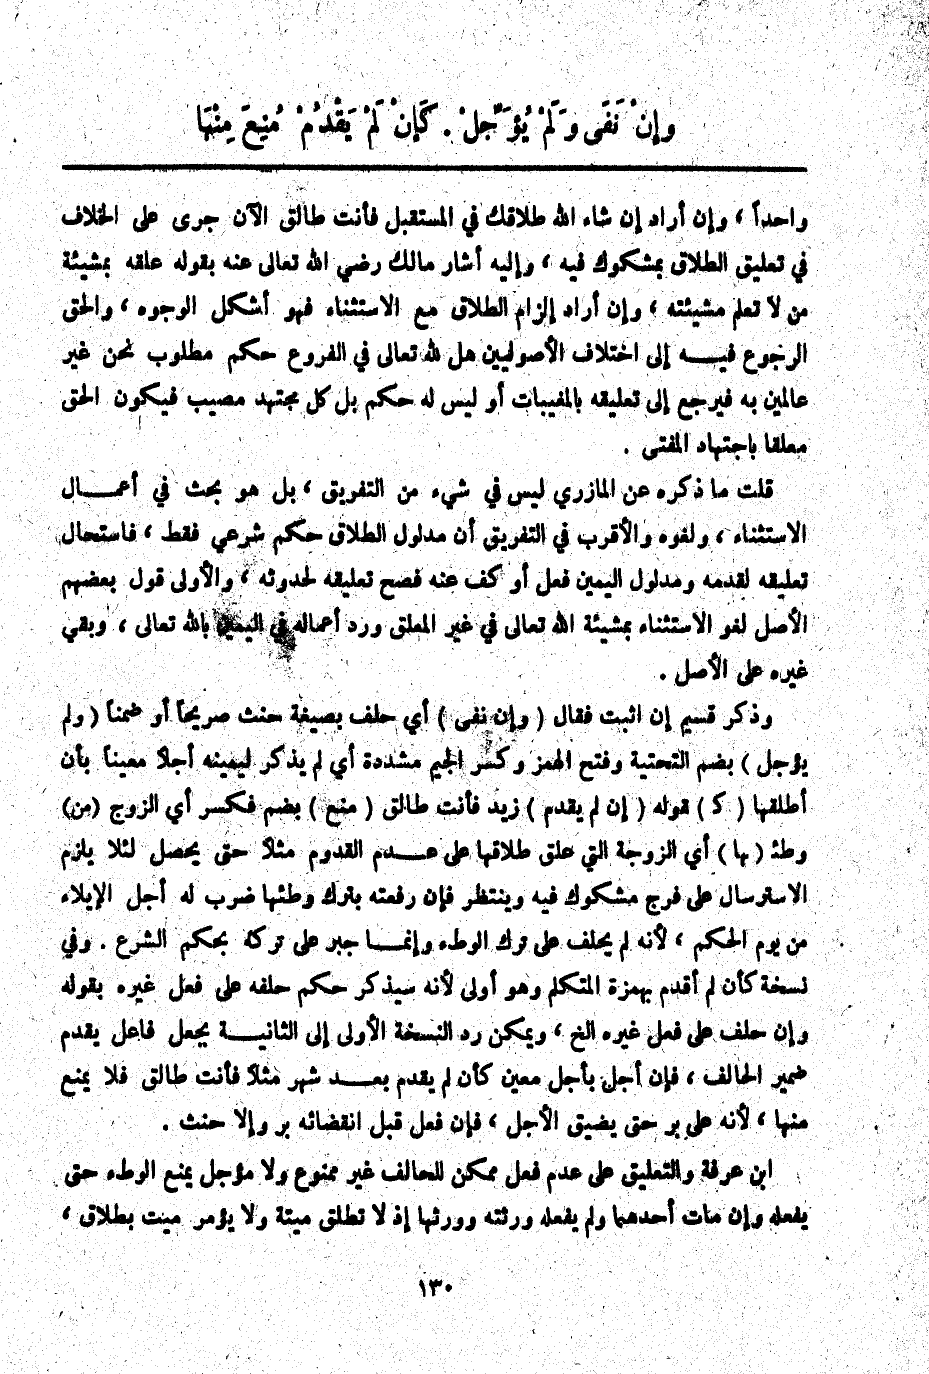 وإنْ نَفَى وَلَمْ يُؤَجِّلْ . كَإِنْ لَمْ يَقْدُمْ مُنِعَ مِنْهَا
واحداً ، وإن أراد إن شاء الله طلاقك في المستقبل فأنت طالق الآن جرى على الخلاف
في تعليق الطلاق بمشكوك فيه ، وإليه أشار مالك رضي الله تعالى عنه بقوله علقه بمشيئة
من لا تعلم مشيئته ، وإن أراد إلزام الطلاق مع الاستثناء فهو أشكل الوجوه ، والحق
الرجوع فيـــه إلى اختلاف الأصوليين هل لله تعالى في الفروع حكم مطلوب نحن غير
عالمين به فيرجع إلى تعليقه بالمغيبات أو ليس له حكم بل كل مجتهد مصيب فيكون الحق
معلقا باجتهاد المفتى .
قلت ما ذكره عن المازري ليس في شيء من التفريق ، بل هو بحث في أعمــــال
الاستثناء ، ولغوه والأقرب في التفريق أن مدلول الطلاق حكم شرعي فقط ، فاستحال
تعليقه لقدمه ومدلول اليمين فعل أو كف عنه فصح تعليقه لحدوثه ، والأولى قول بعضهم
الأصل لغو الاستثناء بمشيئة الله تعالى في غير المعلق ورد أعماله في اليمين بالله تعالى ، وبقي
غيره على الأصل .
وذكر قسيم إن اثبت فقال ( وإن نفى ) أي حلف بصيغة حنث صريحاً أو ضمناً ( ولم
يؤجل ) بضم التحتية وفتح الهمز وكسر الجيم مشددة أي لم يذكر ليمينه أجلا معيناً بأن
أطلقها ( كـ ) قوله ( إن لم يقدم ) زيد فأنت طالق ( منع ) بضم فكسر أي الزوج (من)
وطئـ ( ـها ) أي الزوجة التي علق طلاقها على عــــدم القدوم مثلا حتى يحصل لئلا يلزم
الاسترسال على فرج مشكوك فيه وينتظر فإن رفعته بترك وطئها ضرب له أجل الإيلاء
من يوم الحكم ، لأنه لم يحلف على ترك الوطء وإنمـــا جبر على تركه بحكم الشرع . وفي
نسخة كأن لم أقدم بهمزة المتكلم وهو أولى لأنه سيذكر حكم حلفه على فعل غيره بقوله
وإن حلف على فعل غيره الخ ، ويمكن رد النسخة الأولى إلى الثانيـــة يجعل فاعل يقدم
ضمير الحالف ، فإن أجل بأجل معين كأن لم يقدم بعـــد شهر مثلا فأنت طالق فلا يمنع
منها ، لأنه على بر حتى يضيق الأجل ، فإن فعل قبل انقضائه بر وإلا حنث .
ابن عرفة والتعليق على عدم فعل ممكن للحالف غير ممنوع ولا مؤجل يمنع الوطء حتى
يفعله وإن مات أحدهما ولم يفعله ورثته وورثها إذ لا تطلق ميتة ولا يؤمر ميت بطلاق ،
١٣٠